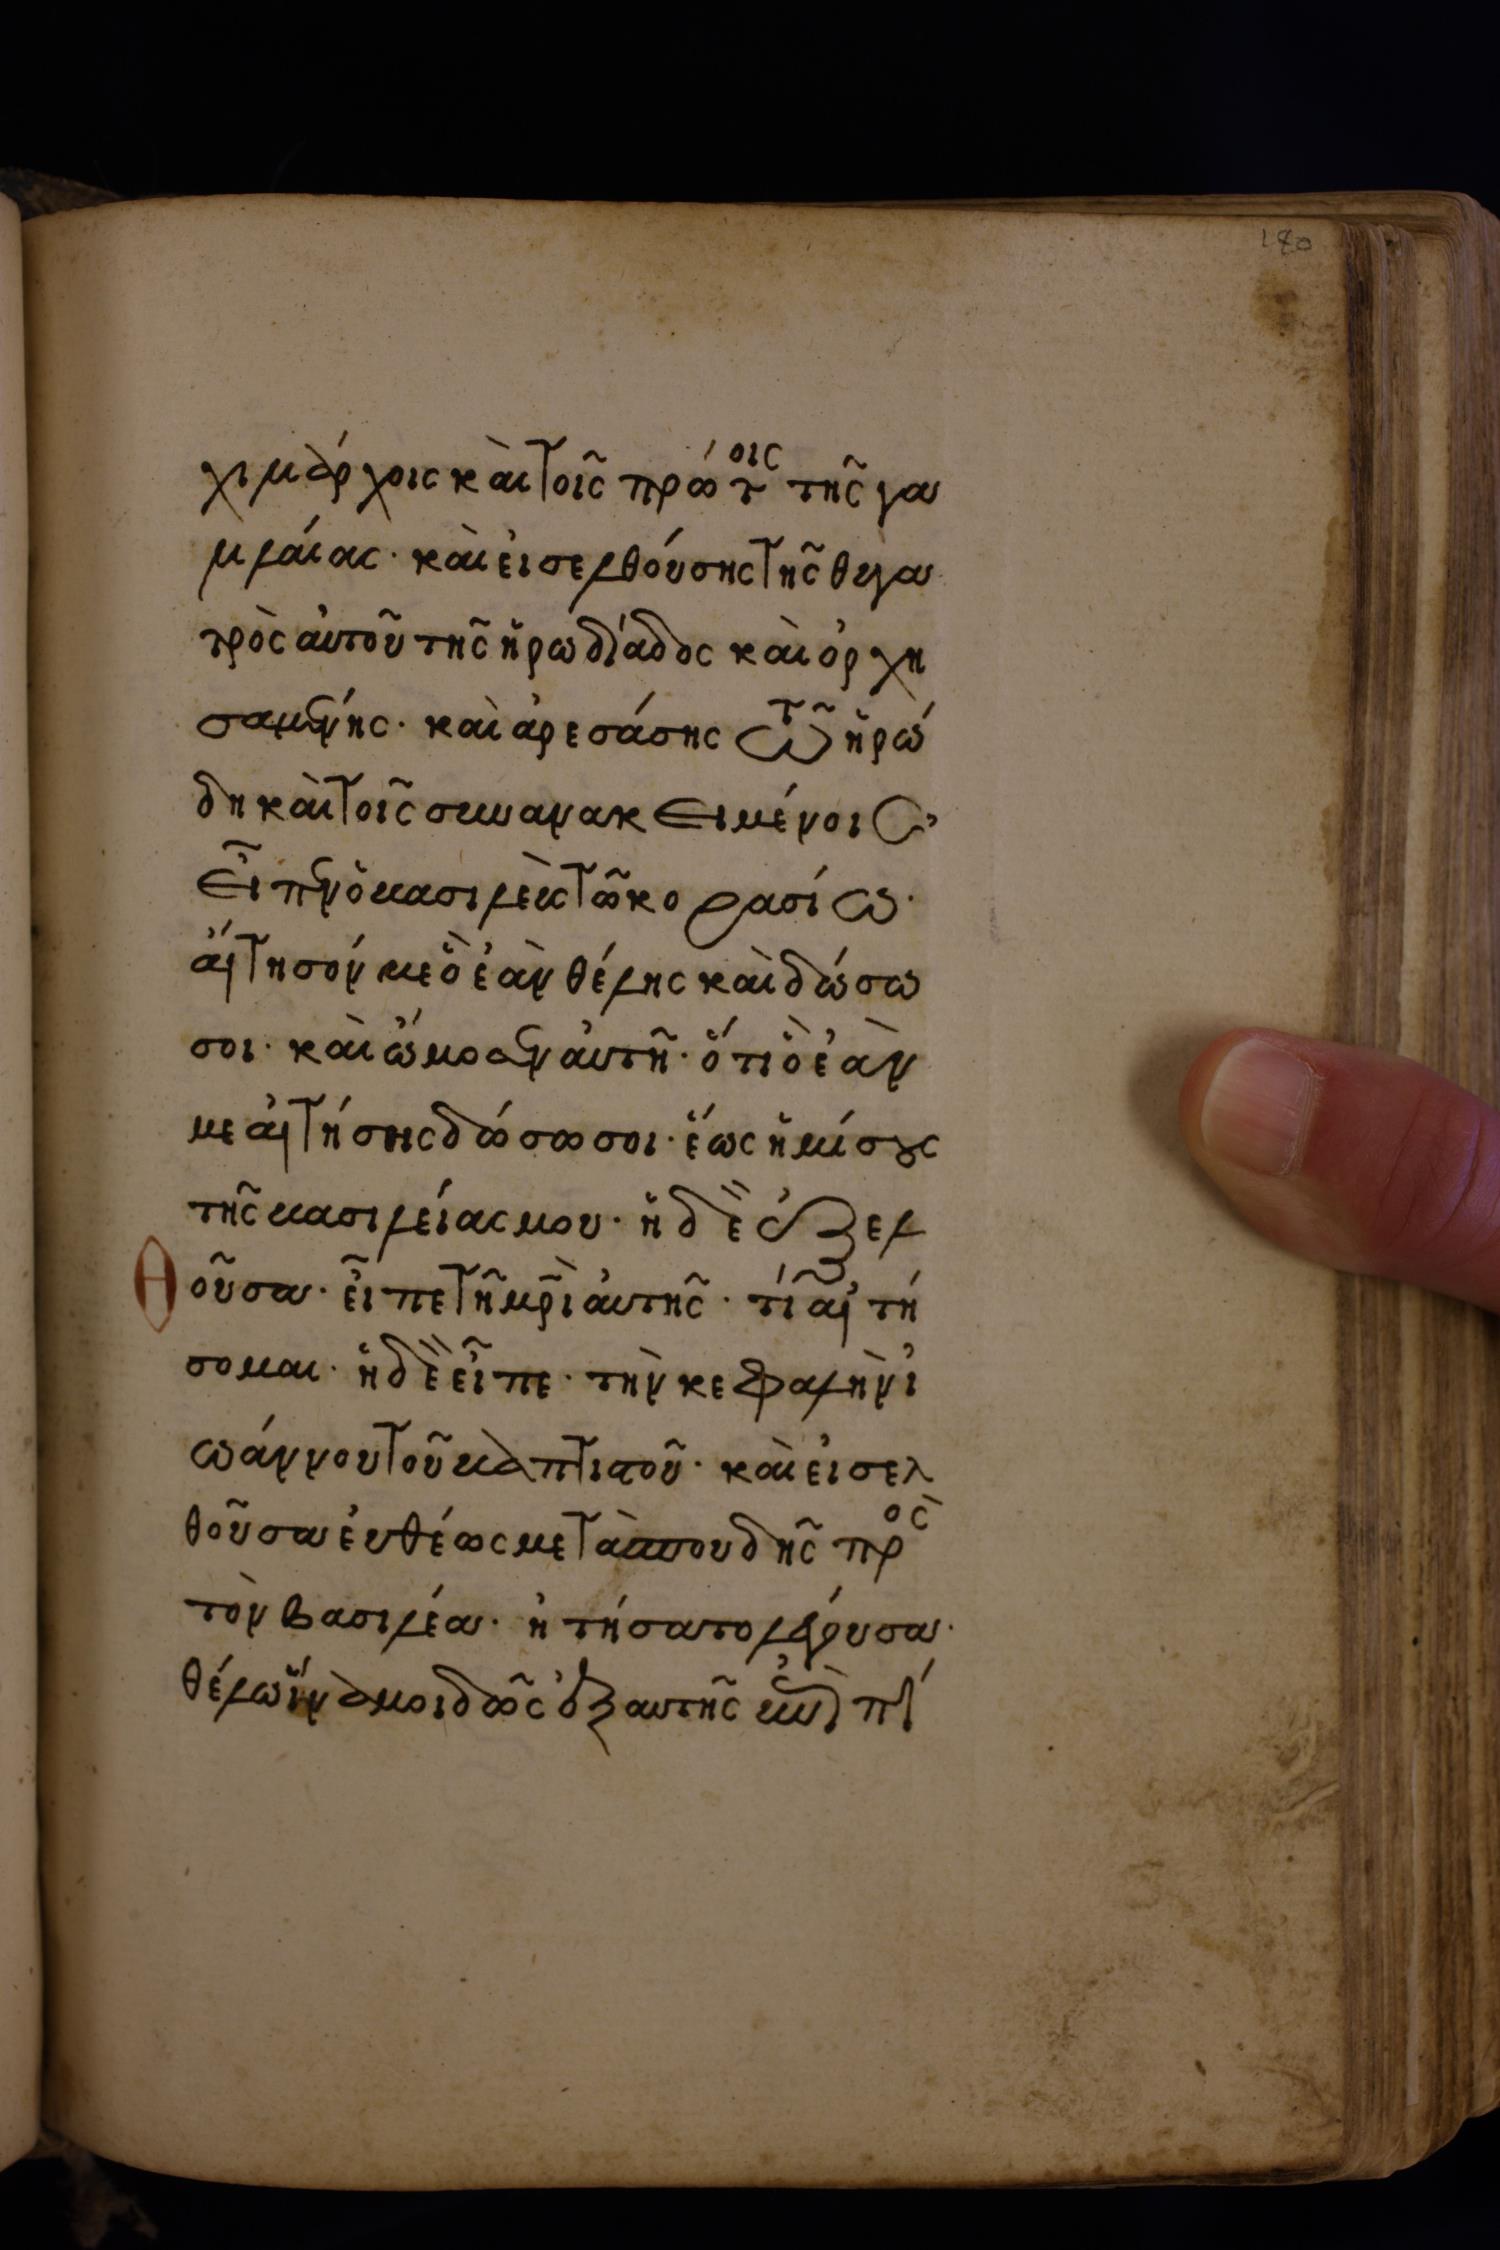 180
χιλιάρχοις καὶ τοῖς πρώτοις τῆς γα
λιλαίας· καὶ εἰσελθούσης τῆς θυγα
τρὸς αὐτοῦ τῆς ἡρωδιάδος καὶ ὀρχη
σαμένης· καὶ ἀρεσάσης τῶ ἡρώ
δη καὶ τοῖς συνανακειμένοις
εἶπεν ὁ βασιλεὺς τῶ κορασίω·
αἴτησόν με ὃ ἐὰν θέλης καὶ δώσω
σοι· καὶ ὤμοσεν αὐτῆ· ὅτι ὃ ἐὰν
με αἰτήσης δώσω σοι· ἕως ἡμίσους
τῆς βασιλείας μου· ἡ δὲ ἐξελ
θοῦσα· εἶπε τῆ μρὶ αὐτῆς· τί αἰτή
σομαι· ἡ δὲ εἶπε· τὴν κεφαλὴν ἰ
ωάννου τοῦ βαπτιστοῦ· καὶ εἰσελ
θοῦσα εὐθέως μετὰ σπουδῆς πρὸς
τὸν βασιλέα· ἠτήσατο λέγουσα·
θέλω ἵνα μοι δῶς ἐξαυτῆς ἐπὶ πί